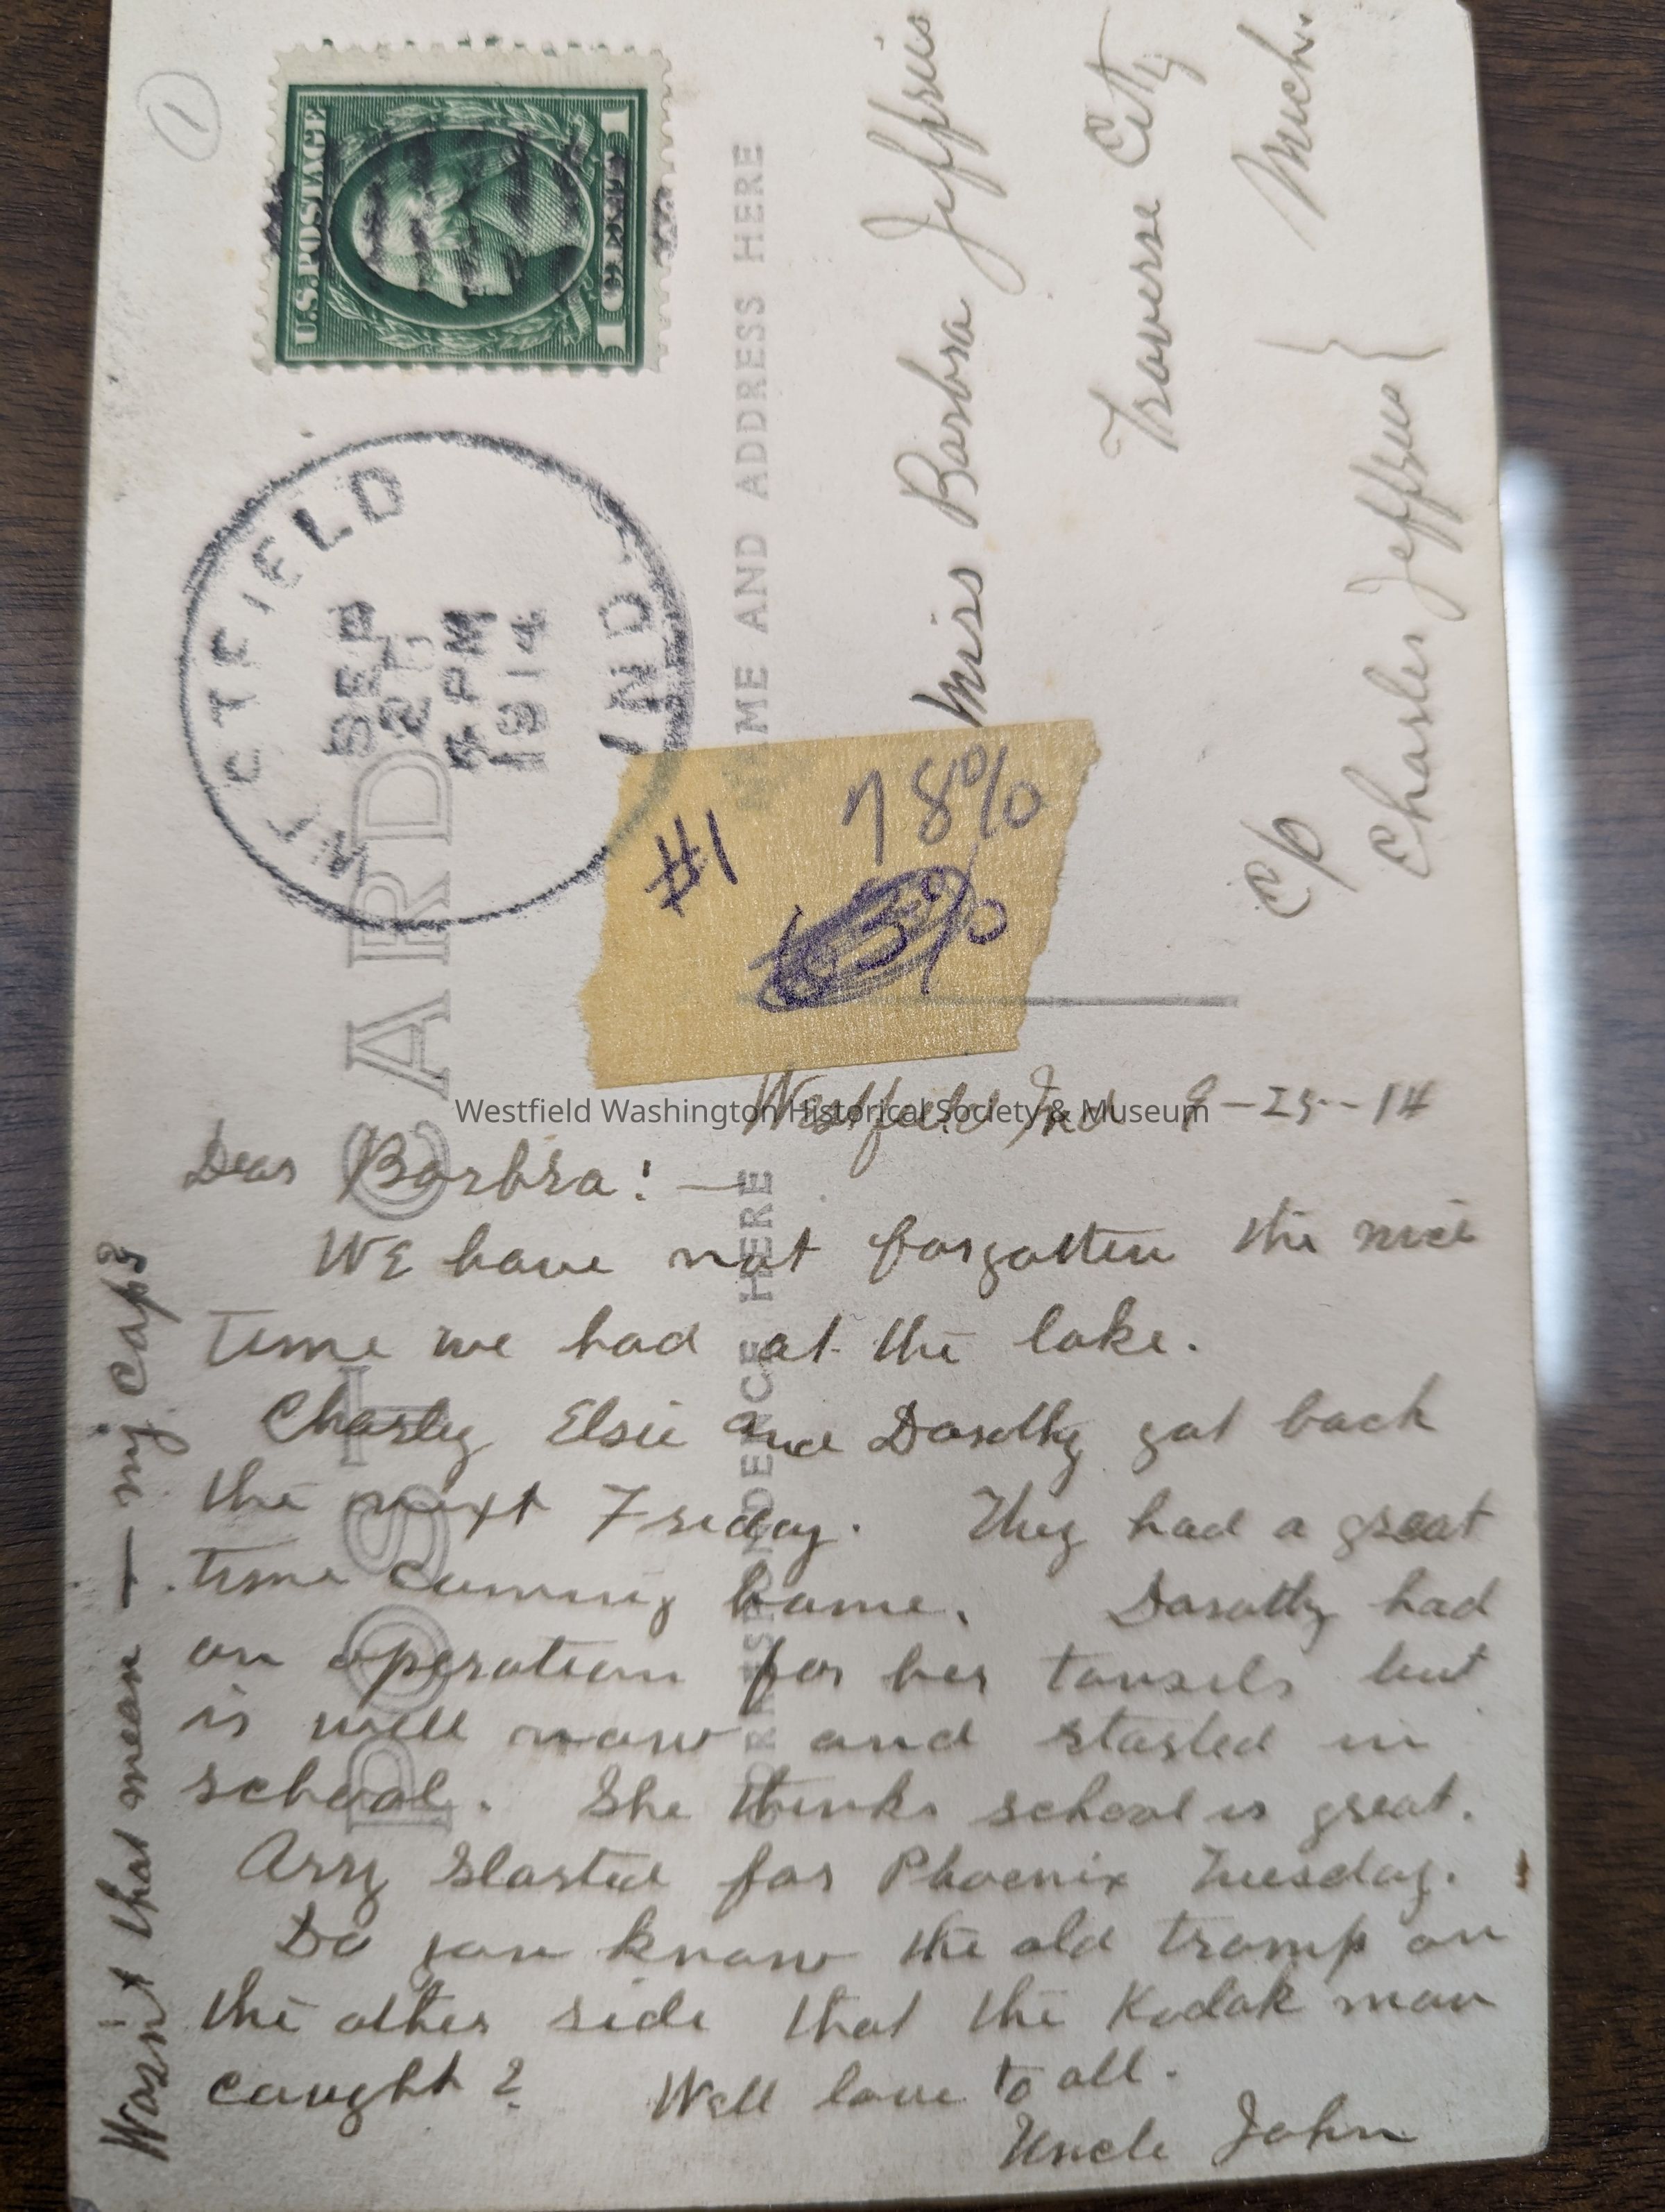 1
U.S. POSTAGE
1 CENT 1
WESTFIELD
SEP
4 PM
1914
IND.
POST CARD
NAME AND ADDRESS HERE
CORRESPONDENCE HERE
#1
78%
Miss Barbra Jeffries
Traverse City
Mich.
c/o
Charles Jeffries }
Westfield Ind 9-25-14
Westfield Washington Historical Society & Museum
Dear Barbra! —
We have not forgotten the nice
time we had at the lake.
Charley Elsie and Dorothy got back
the next Friday. They had a great
time cumming home. Dorothy had
an operation for her tonsels but
is well now and started in
school. She thinks school is great.
Arry started for Phoenix Tuesday.
Do you know the old tramp on
the other side that the Kodak man
caught? Well love to all.
Uncle John
Wasn't that mean — my cap?